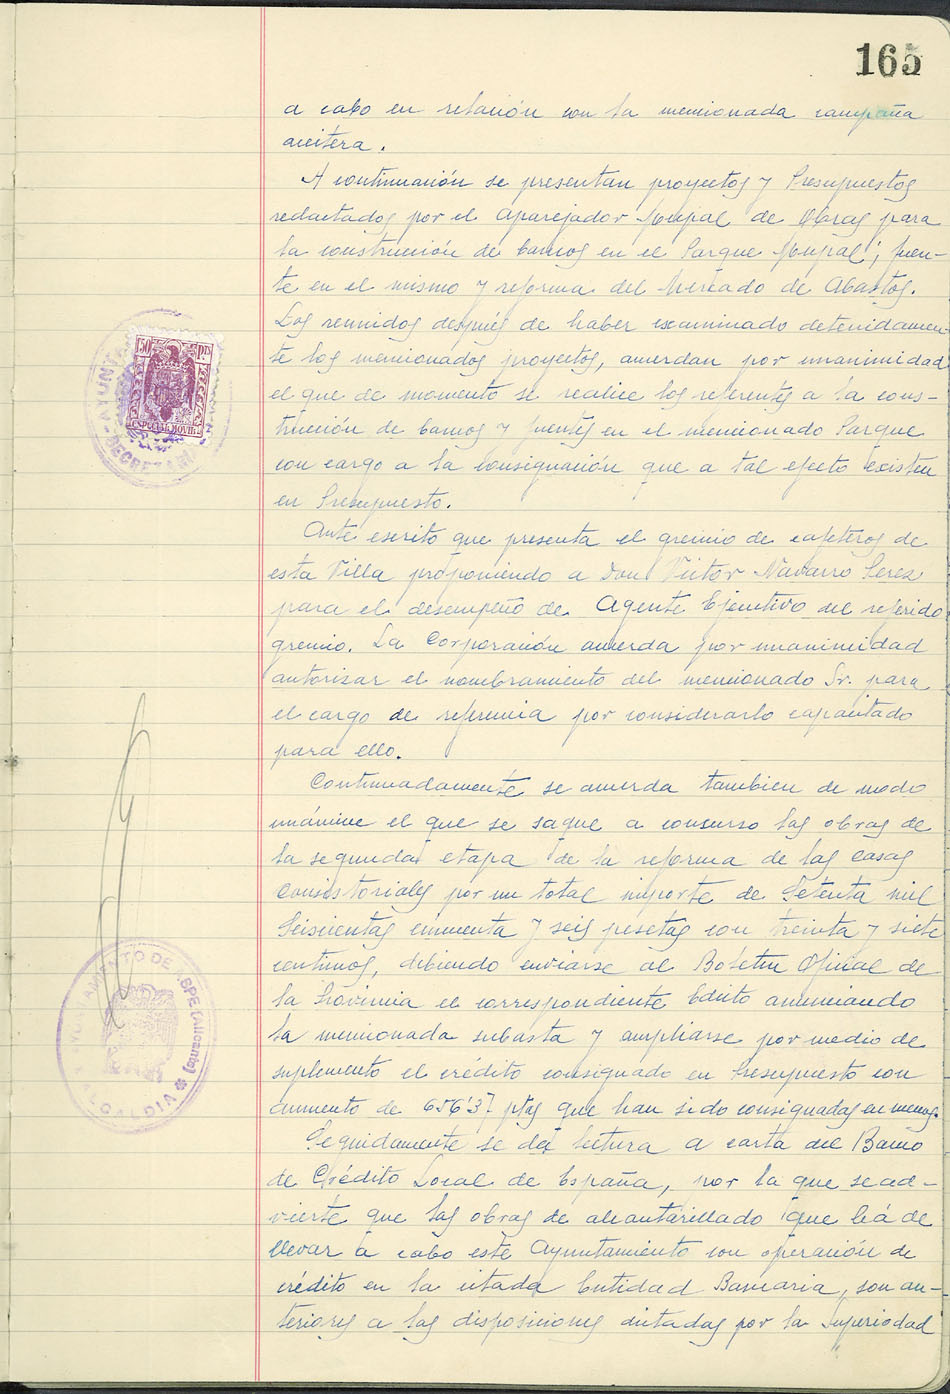 165
a cabo en relación con la mencionada campaña
aceitera.
A continuación se presentan proyectos y Presupuestos
redactados por el Aparejador Mupal de Obras para
la construcción de bancos en el Parque Mupal; fuen-
te en el mismo y reforma del Mercado de Abastos.
Los reunidos después de haber examinado detenidamen-
te los mencionados proyectos, acuerdan por unanimidad
el que de momento se realice los referentes a la cons-
trucción de bancos y fuentes en el mencionado Parque
con cargo a la consignación que a tal efecto existen
en Presupuesto.
Ante escrito que presenta el gremio de cafeteros de
esta Villa proponiendo a Don Victor Navarro Perez
para el desempeño de Agente Ejecutivo del referido
gremio. La Corporación acuerda por unanimidad
autorizar el nombramiento del mencionado Sr. para
el cargo de referencia por considerarlo capacitado
para ello.
Continuadamente se acuerda tambien de modo
unánime el que se saque a concurso las obras de
la segunda etapa de la reforma de las Casas
Consistoriales por un total importe de Setenta mil
Seiscientas cincuenta y seis pesetas con treinta y siete
centimos, debiendo enviarse al Boletin Oficial de
la Provincia el correspondiente Edicto anunciando
la mencionada subasta y ampliarse por medio de
suplemento el crédito consignado en Presupuesto con
aumento de 656'37 ptas que han sido consignadas en menos.
Seguidamente se dá lectura a carta del Banco
de Crédito Local de España, por la que se ad-
vierte que las obras de alcantarillado que há de
llevar a cabo este Ayuntamiento con operación de
crédito en la citada Entidad Bancaria, son an-
teriores a las disposiciones dictadas por la Superiodad
1'50 PTS
ESPECIAL MOVIL
AYUNT
SECRETARIA
AYUNTAMIENTO DE ASPE (Alicante)
ALCALDIA